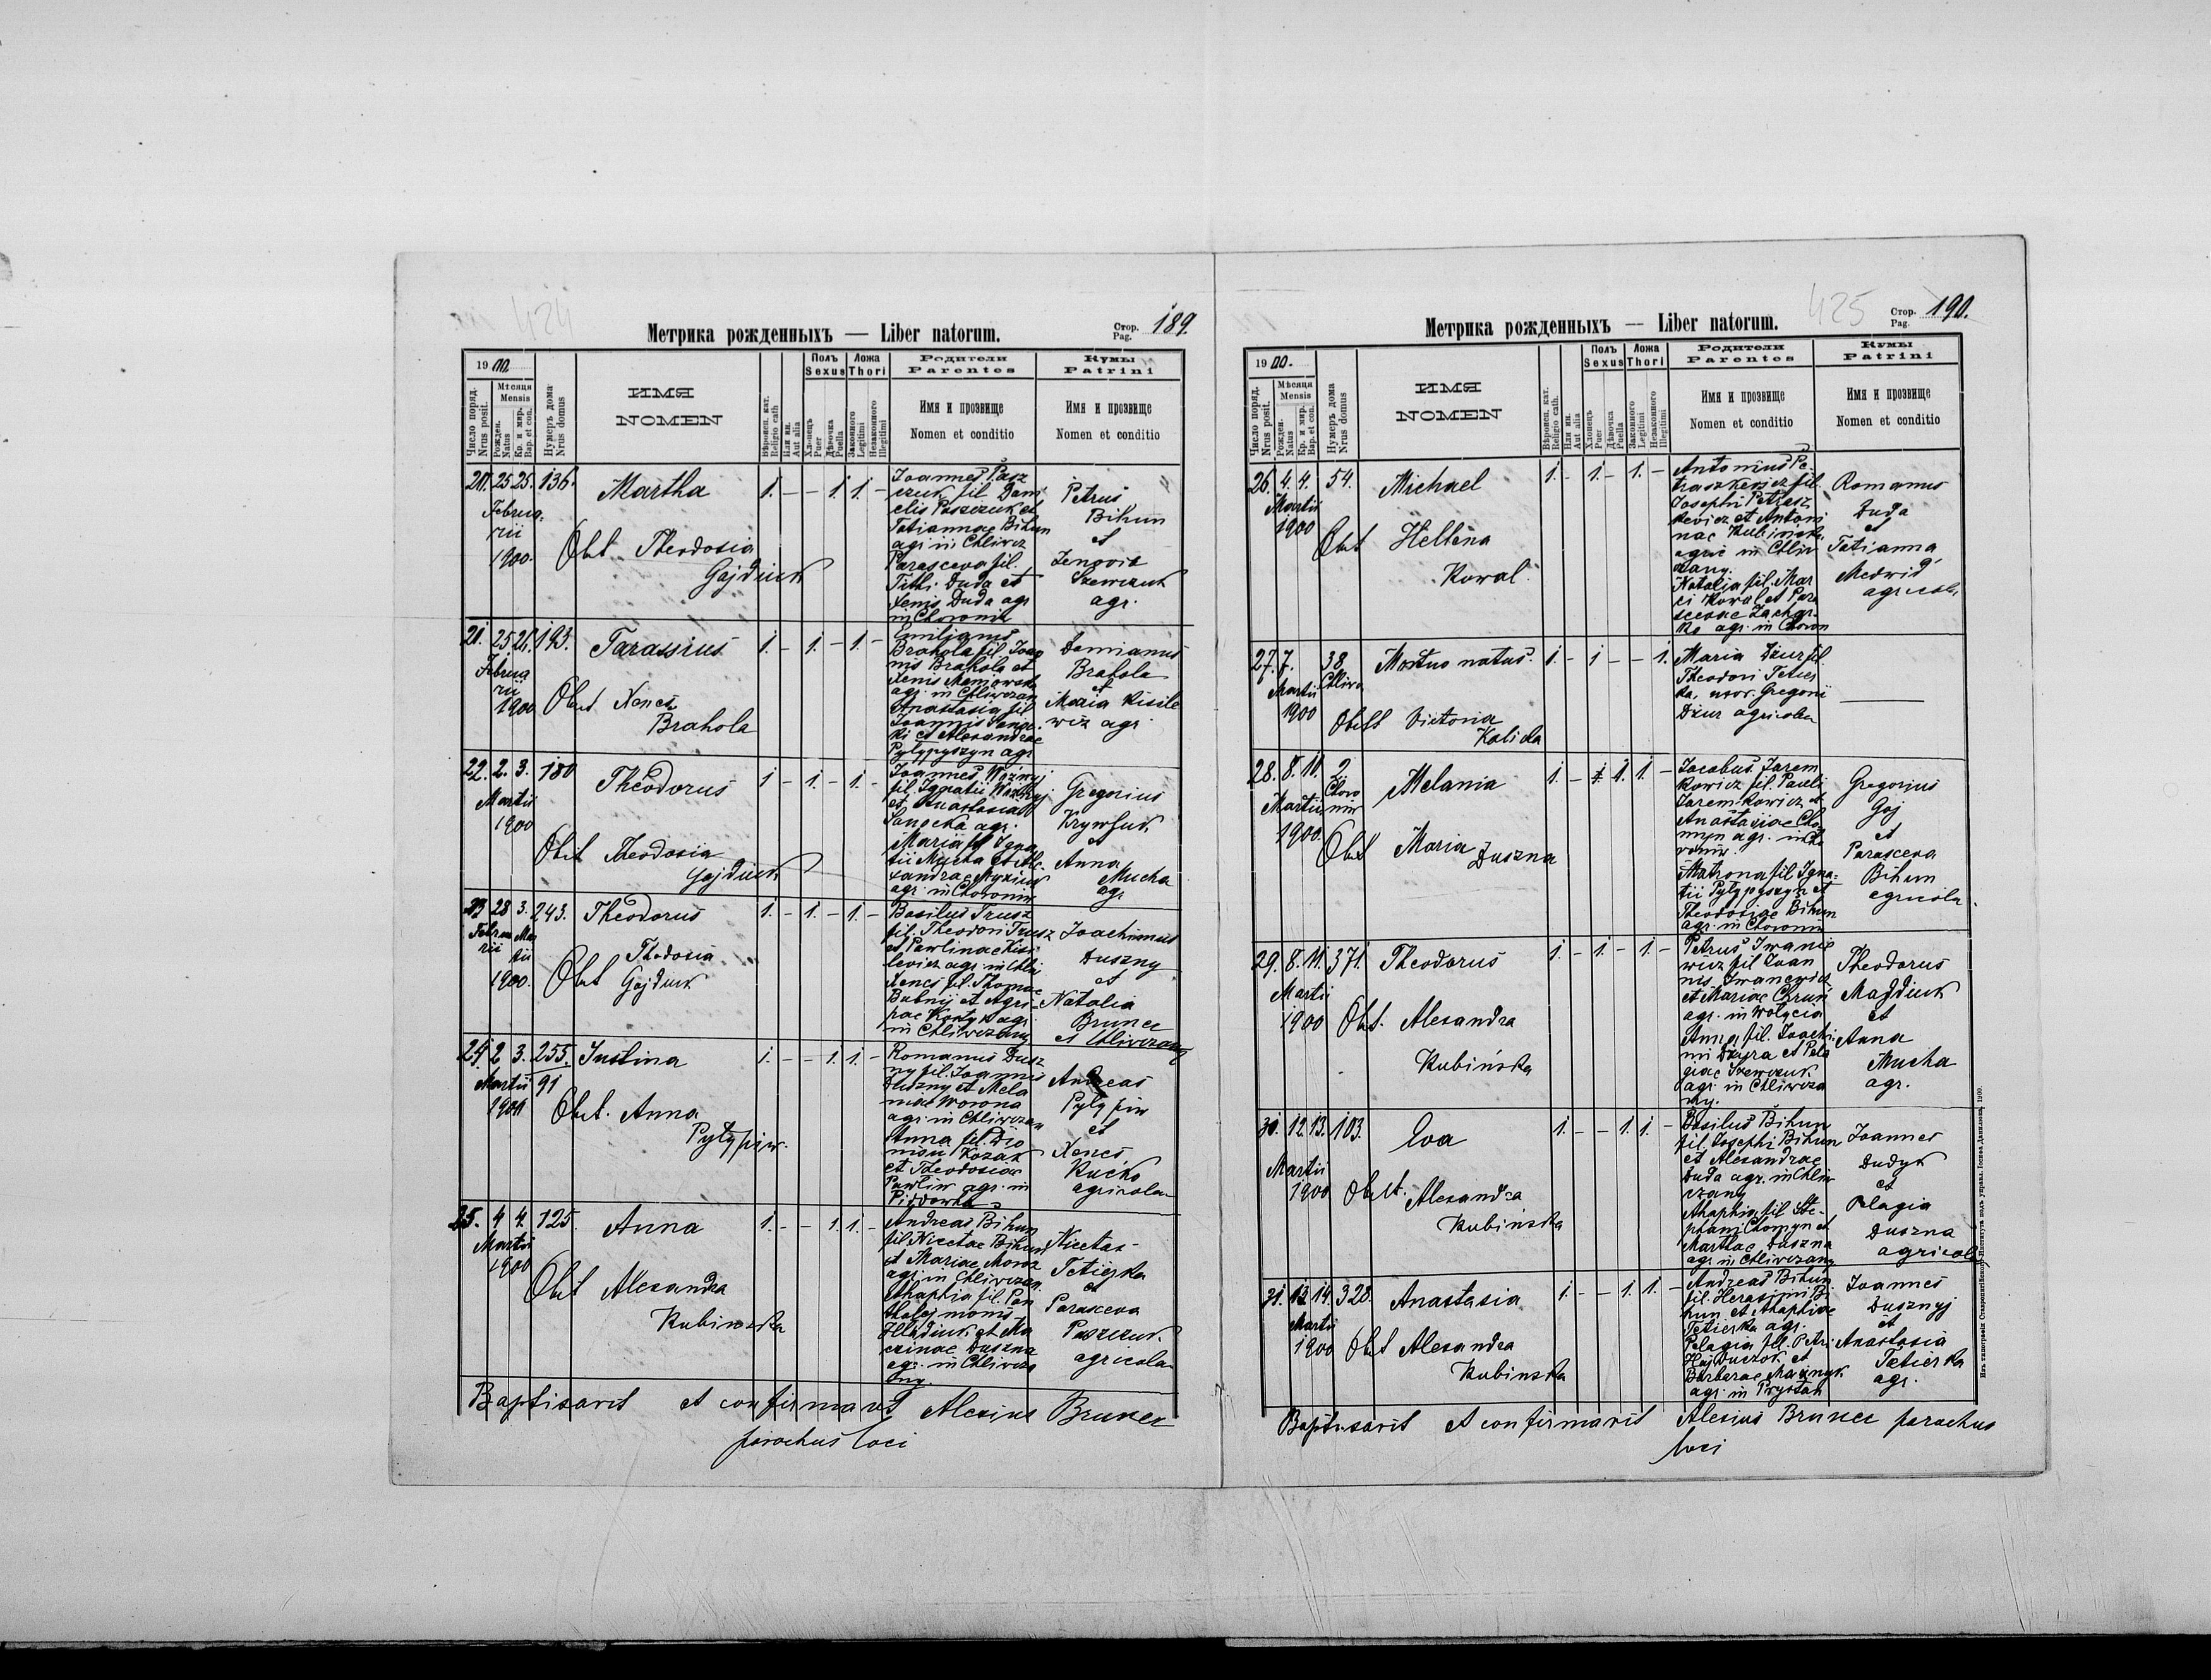 424
Метрика рожденныхъ — Liber natorum.
Стор.
Pag.
189.
19 00.
Число поряд.
Nrus posit.
Мѣсяця
Mensis
Рожден.
Natus
Кр. и мир.
Bap. et con.
Нумеръ дома
Nrus domus
ИМЯ
NOMEN
Вѣроисп. кат.
Religio cath
Или ин.
Aut alia
Полъ
Sexus
Хлопець
Puer
Дѣвочка
Puella
Ложа
Thori
Законного
Legitimi
Незаконного
Illegitimi
Родители
Parentes
Имя и прозвище
Nomen et conditio
Кумы
Patrini
Имя и прозвище
Nomen et conditio
20. 25 25. 136. Martha 1. - - 1. 1. -
Februa-
rii
1900.
Obst Theodosia
Gajdiuk
Joannes Pasz
czuk fil Dani
elis Paszczuk et
Tatiannae Bihun
agr in Chliwcz
Parasceva fil.
Titli Duda et
Xenis Duda agr
in Choronin
Petrus
Bihun
et
Zenovia
Szewczuk
agr.
21. 25. 25. 193. Tarassius 1. - 1. - 1. -
Februa
rii
1900
Obst Xenes
Brahola
Emilianus
Brahola fil Joan
nis Brahola et
agr. in Chliwczan
Anastasia fil
Joannis
et Alexandrae
Pylypyszyn agr
Damianus
Brahola
et
Maria Kisile
wicz agr.
22. 2. 3. 180 Theodorus 1 - 1. - 1. -
Martii
1900
Obst Theodosia
Gajdiuk
Joannes Woźnyj
fil. Ignatii Woźnyj
et Anastasia
Sanocka agr.
Maria fil Igna
tii Mucha et Ale
xandrae
agr. in Choronin
Gregorius
Krywsuk
et
Anna
Mucha
agr
23 28 3. 243. Theodorus 1. - 1. - 1. -
Februa Mar
rii tii
1900.
Theodosia
Obst Gajdiuk
Basilus Trusz
fil. Theodori Trusz
et Pawlinae Kisi
lewicz agr. in Chli
Xenes fil. Thomae
Bubnij et Agri-
pae agr
in Chliwczany
Joachimus
Duszny
et
Natalia
Bruner
et Chliwczany
24. 2 3. 255. Justina 1. - - 1. 1. -
Martii 91
1900
Obst. Anna
Pylypiw.
Romanus Dusz
ny fil. Joannis
Duszny et Mela
niae Worona
agr. in Chliwczan
Anna fil. Dio
nisii Kozak
et Theodosiae
Pawliw agr. in
Andreas
Pylypiw
et
Xenes
Kućko
agricolae
25. 4 4. 125. Anna 1. - - 1. 1. -
Martii
1900
Obst Alexandra
Kubinska
Andreas Bihun
fil. Nicetae Bihun
et Mariae Moroz
agr. in Chliwczan
Ahaphia fil. Pan
thaleimonis
Hladiuk et Ma
crinae Duszna
agr. in Chliwcza
ny.
Nicetas
Tetierka
et
Parasceva
Paszczuk
agricolae
Baptisavit et confirmavit Alexius Bruner
parochus loci
425
Метрика рожденныхъ — Liber natorum.
Стор.
Pag.
190.
19 00.
Число поряд.
Nrus posit.
Мѣсяця
Mensis
Рожден.
Natus
Кр. и мир.
Bap. et con.
Нумеръ дома
Nrus domus
ИМЯ
NOMEN
Вѣроисп. кат.
Religio cath.
Или ин.
Aut alia
Полъ
Sexus
Хлопець
Puer
Дѣвочка
Puella
Ложа
Thori
Законного
Legitimi
Незаконного
Illegitimi
Родители
Parentes
Имя и прозвище
Nomen et conditio
Кумы
Patrini
Имя и прозвище
Nomen et conditio
26. 4. 4. 54. Michael 1. - 1. - 1. -
Martii
1900
Obst Hellena
Kowal.
Antonius Pe-
traszkewicz fil.
Josephi Petrasz
kewicz et Antoni
nae Kubinska
agric in Chliw
czany.
Natalia fil. Mar
ci Kowal et Para
scevae Zachar-
ko agr. in Choron
Romanus
Duda
et
Tatianna
Medwid
agricolae
27. 7. 38 Mortuo natus. 1. - 1 - - 1.
Martii Chliw
1900
Obst Victoria
Kalicka
Maria Dziur fil.
Theodori Tetier
ka, uxor. Gregorii
Dziur agricolae
28. 8. 11. 2 Melania 1. - 1. 1. 1. -
Martii Choro
nin
1900.
Obst Maria
Duszna
Jacobus Jarem
kowicz fil. Pauli
Jaremkowicz et
Anastasiae Cho
myn agr. in Cho
ronin.
Matrona fil Igna-
tii Pylypyszyn et
Theodosiae Bihun
agr. in Choronin
Gregorius
Gaj
et
Parasceva
Bihun
agricola
29. 8. 11. 371. Theodorus 1. - 1. - 1. -
Martii
1900
Obst. Alexandra
Kubińska
Petrus Iwanie
wicz fil Joan
nis Iwanewicz
et Mariae Chrun
agr. in Wolycia
Anna fil. Joachi-
mi Dziyra et Pela
giae Szewczuk
agr. in Chliwcza
ny.
Theodorus
Majdiuk
et
Anna
Mucha
agr.
30. 12. 13. 103. Eva 1. - - 1. 1. -
Martii
1900
Obst. Alexandra
Kubińska
Basilus Bihun
fil. Josephi Bihun
et Alexandrae
Duda agr. in Chliw
czany
Ahaphia fil Ste-
phani Chomyn et
Marthae Duszna
agr. in Chliwczany
Joannes
Dudyk
et
Pelagia
Duszna
agricolae
31. 12 14. 328. Anastasia 1. - - 1. 1. -
Martii
1900
Obst Alexandra
Kubinska
Andreas Bihun
fil. Herasimi Bi
hun et Ahaphiae
Tetierka agr.
Pelagia fil. Petri
Hajduczok et
Barbarae
agr. in Prystan
Joannes
Dusznyj
et
Anastasia
Tetierka
agr.
Baptisavit et confirmavit Alexius Bruner parochus
loci
Изъ типографіи Ставропигійского Института подъ управл. Іосифа Данилюка 1900.